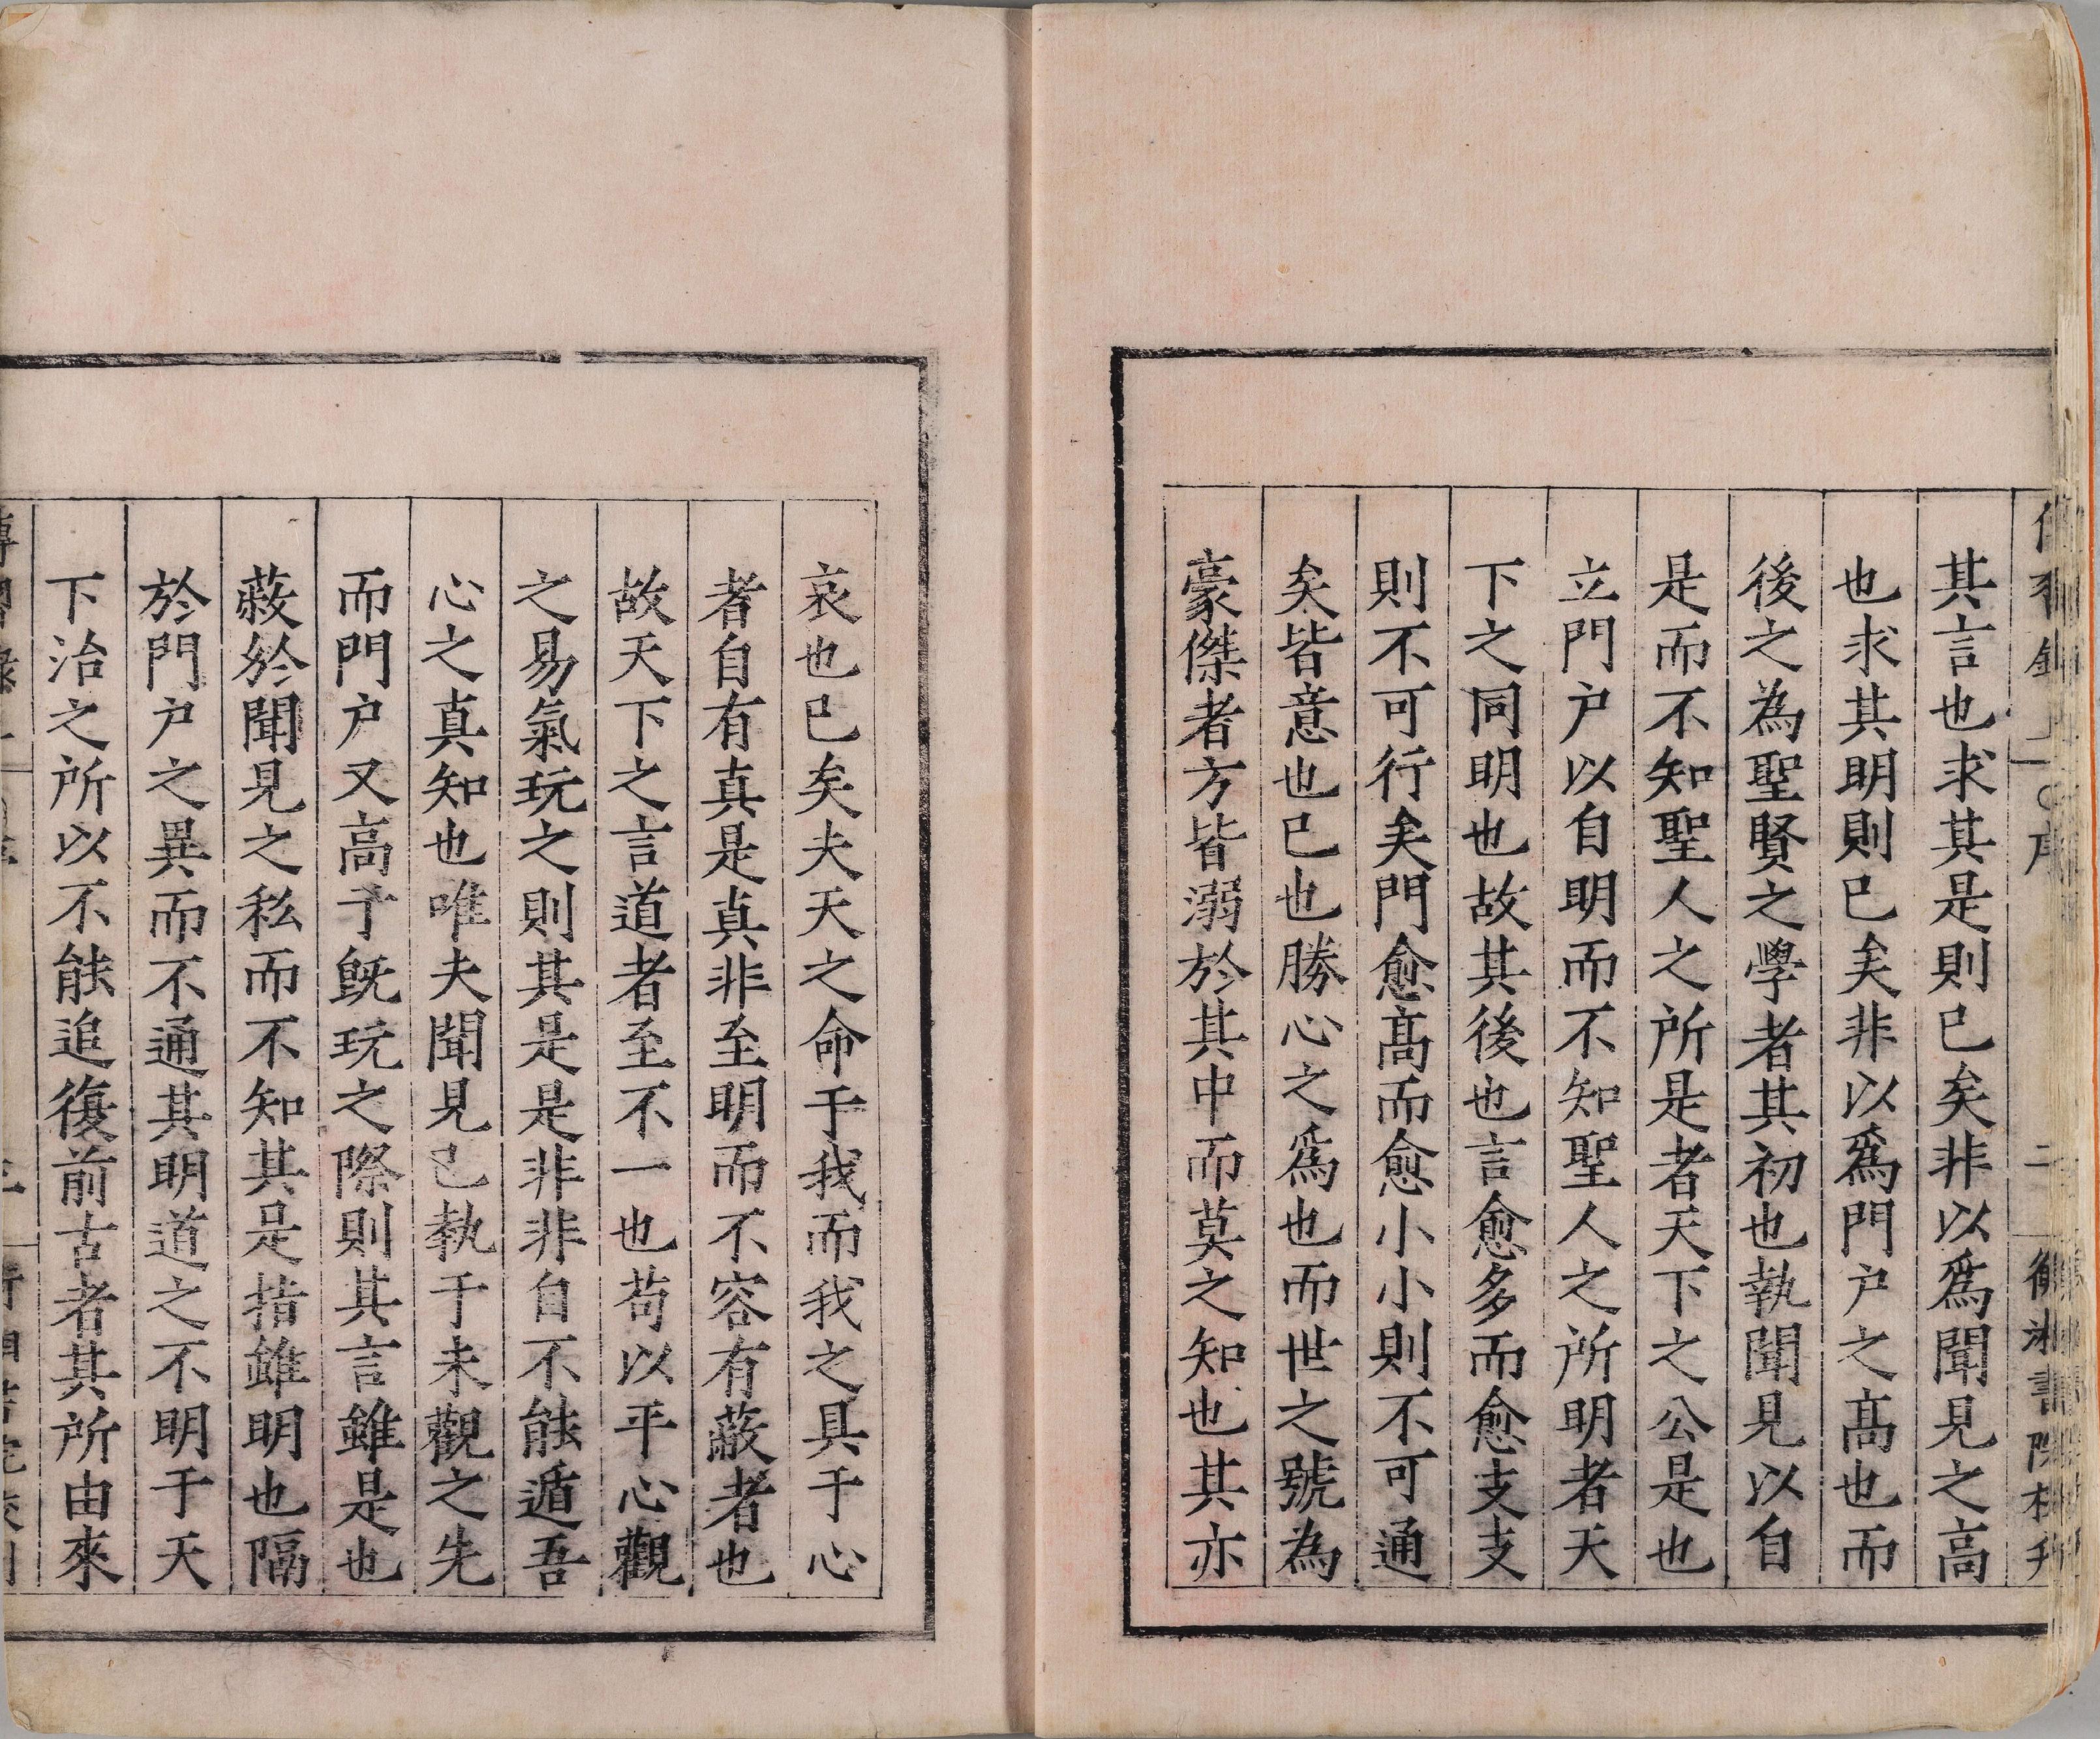 其言也求其是則已矣非以爲聞見之高
也求其明則已矣非以爲門户之髙也而
後之為聖賢之學者其初也執聞見以自
是而不知聖人之所是者天下之公是也
立門户以自明而不知聖人之所明者天
下之同明也故其後也言愈多而愈支支
則不可行矣門愈髙而愈小小則不可通
矣皆意也已也勝心之爲也而世之號為
豪傑者方皆溺於其中而莫之知也其亦
哀也已矣夫天之命于我而我之具于心
者自有真是真非至明而不容有蔽者也
故天下之言道者至不一也苟以平心觀
之易氣玩之則其是是非非自不能遁吾
心之真知也唯夫聞見已執于未觀之先
而門户又高于既玩之際則其言雖是也
蔽於聞見之私而不知其是指雖明也隔
於門户之異而不通其明道之不明于天
下治之所以不能追復前古者其所由來